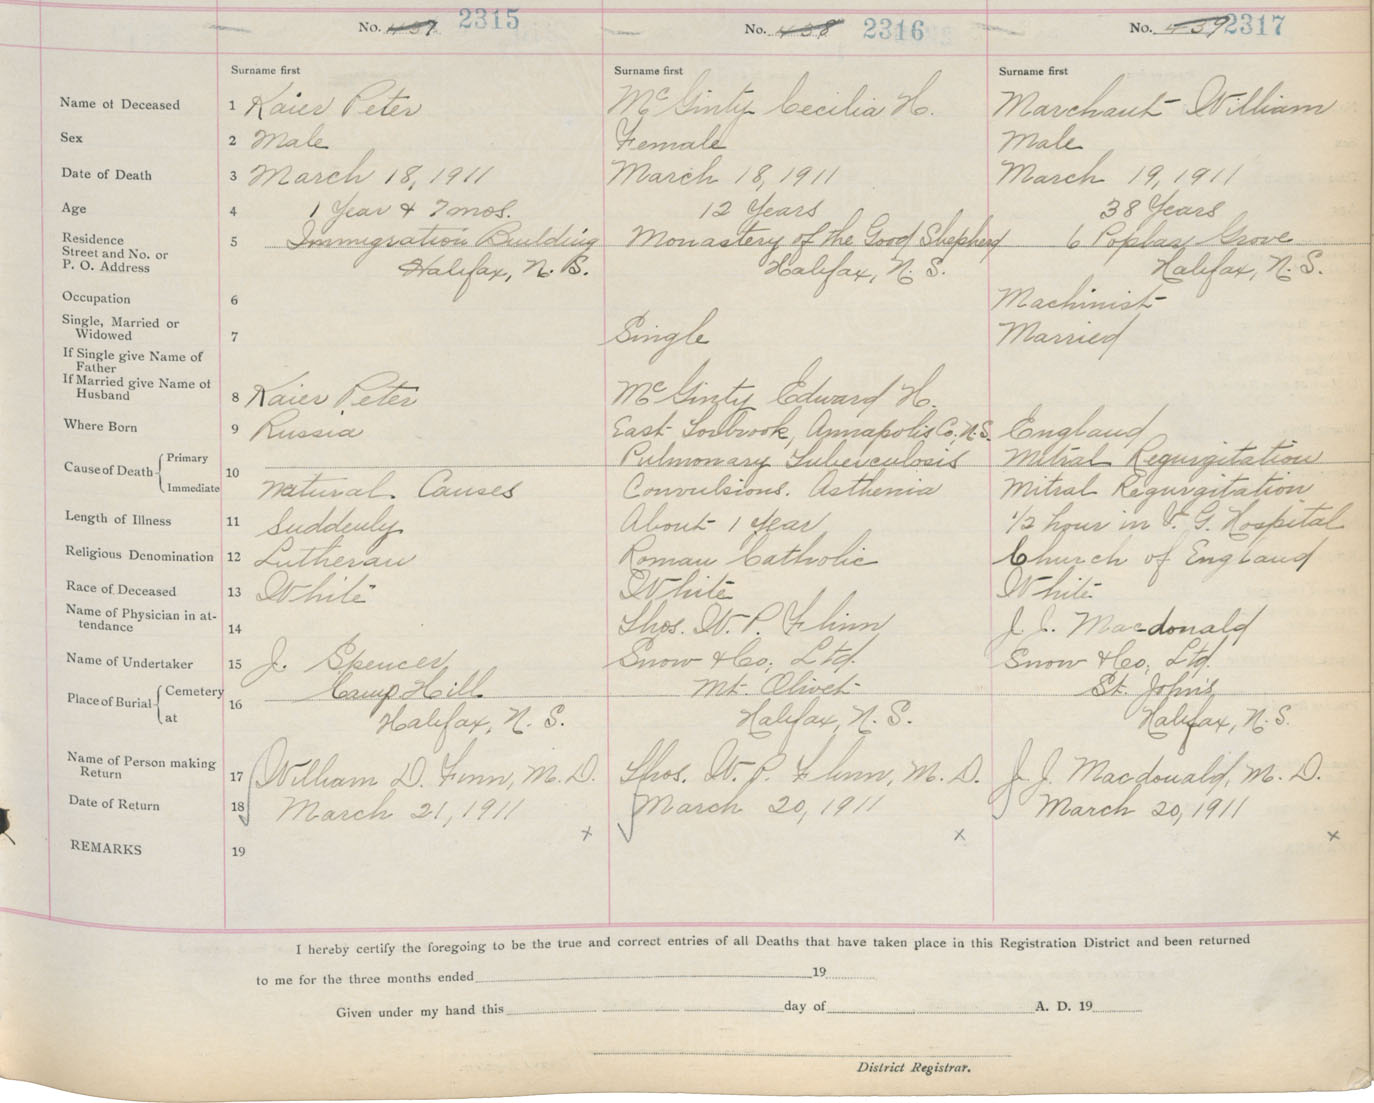 No. 437 2315 No. 438 2316 No. 439 2317
Surname first Surname first Surname first
Name of Deceased 1 Kaier Peter McGinty Cecilia H. Marchant William
Sex 2 Male Female Male
Date of Death 3 March 18, 1911 March 18, 1911 March 19, 1911
Age 4 1 Year & 7 mos. 12 Years 38 Years
Residence
Street and No. or 5 Immigration Building Monastery of the Good Shepherd 6 Poplar Grove
P. O. Address Halifax, N. S. Halifax, N. S. Halifax, N. S.
Occupation 6 Machinist
Single, Married or
Widowed 7 Single Married
If Single give Name of
Father
If Married give Name of
Husband 8 Kaier Peter McGinty Edward H.
Where Born 9 Russia East Torbrook, Annapolis Co, N.S. England
Cause of Death Primary 10 Pulmonary Tuberculosis Mitral Regurgitation
Immediate Natural Causes Convulsions. Asthenia Mitral Regurgitation
Length of Illness 11 Suddenly About 1 Year 1/2 hour in V. G. Hospital
Religious Denomination 12 Lutheran Roman Catholic Church of England
Race of Deceased 13 White White White
Name of Physician in at-
tendance 14 Thos. W. P. Flinn J. J. Macdonald
Name of Undertaker 15 J. Spencer Snow & Co, Ltd. Snow & Co, Ltd.
Place of Burial Cemetery 16 Camp Hill Mt. Olivet St. John's
at Halifax, N. S. Halifax, N. S. Halifax, N. S.
Name of Person making
Return 17 William D. Finn, M. D. Thos. W. P. Flinn, M. D. J. J. Macdonald, M. D.
Date of Return 18 March 21, 1911 March 20, 1911 March 20, 1911
x x x
REMARKS 19
I hereby certify the foregoing to be the true and correct entries of all Deaths that have taken place in this Registration District and been returned
to me for the three months ended 19
Given under my hand this day of A. D. 19
District Registrar.